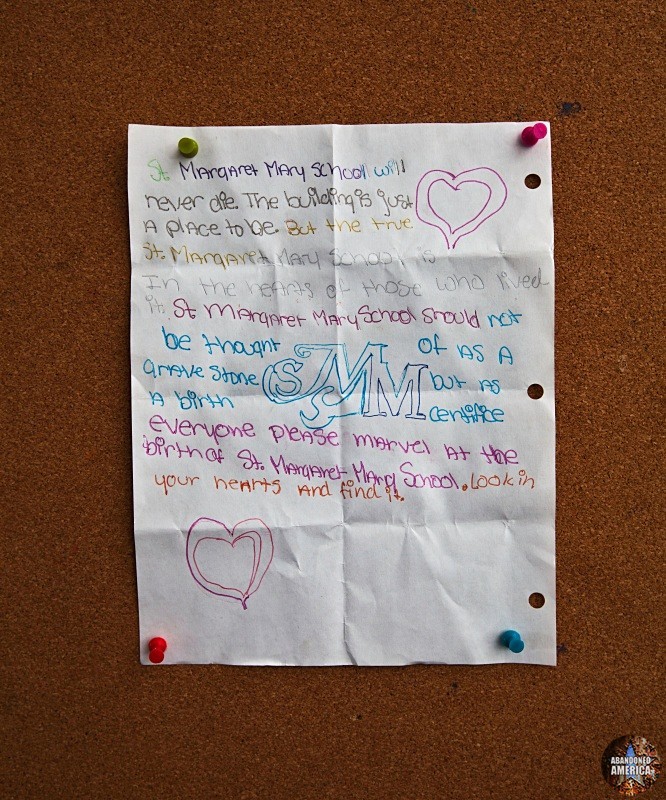 St. Margaret Mary School will
never die. The building is just
A place to be. But the true
St. Margaret Mary School is
In the hearts of those who lived
it. St Margaret Mary School should not
be thought of as A
grave stone but as
A birth certifice
everyone please marvel at the
birth of St. Margaret Mary School. Look in
your hearts and find it.
SSMM
ABANDONED
AMERICA